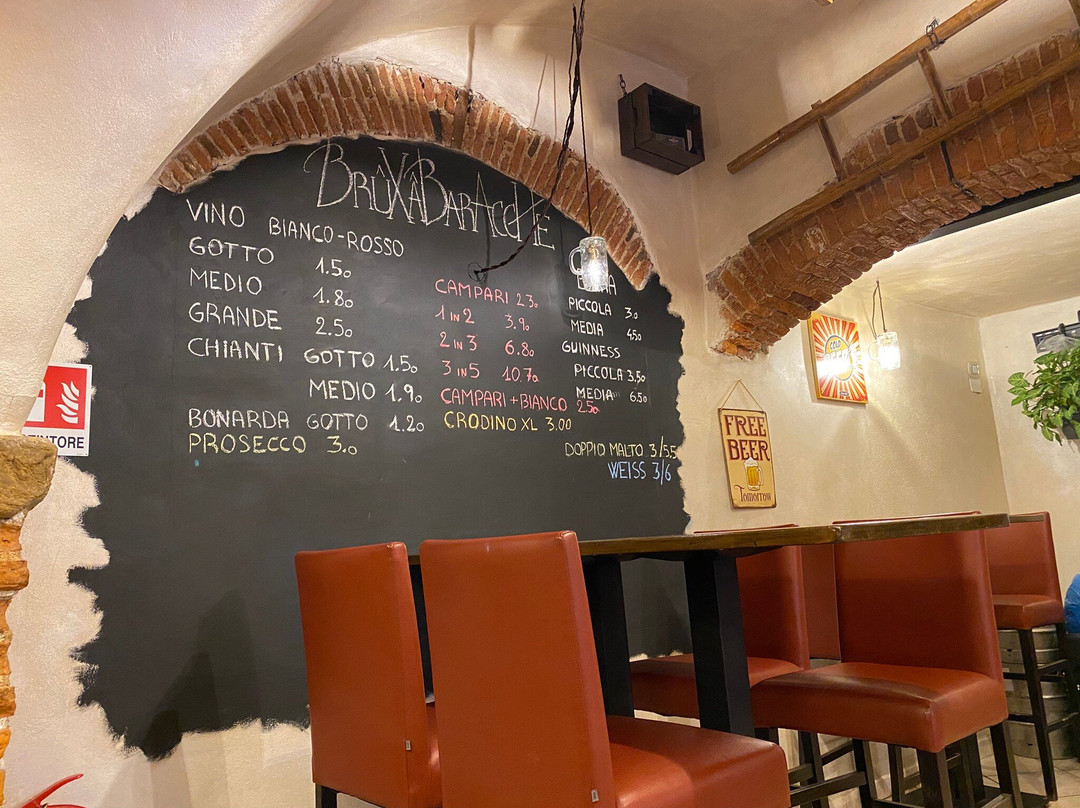 BRUXABARACCHE
VINO BIANCO-ROSSO
GOTTO 1.50
MEDIO 1.80
GRANDE 2.50
CHIANTI GOTTO 1.50
MEDIO 1.90
BONARDA GOTTO 1.20
PROSECCO 3.0
CAMPARI 2.30
1 IN 2 3.90
2 IN 3 6.80
3 IN 5 10.70
CAMPARI + BIANCO 2.50
CRODINO XL 3.00
PICCOLA 3.0
MEDIA 4.50
GUINNESS
PICCOLA 3.50
MEDIA 6.50
DOPPIO MALTO 3/5.5
WEISS 3/6
COLD
FREE
BEER
Tomorrow